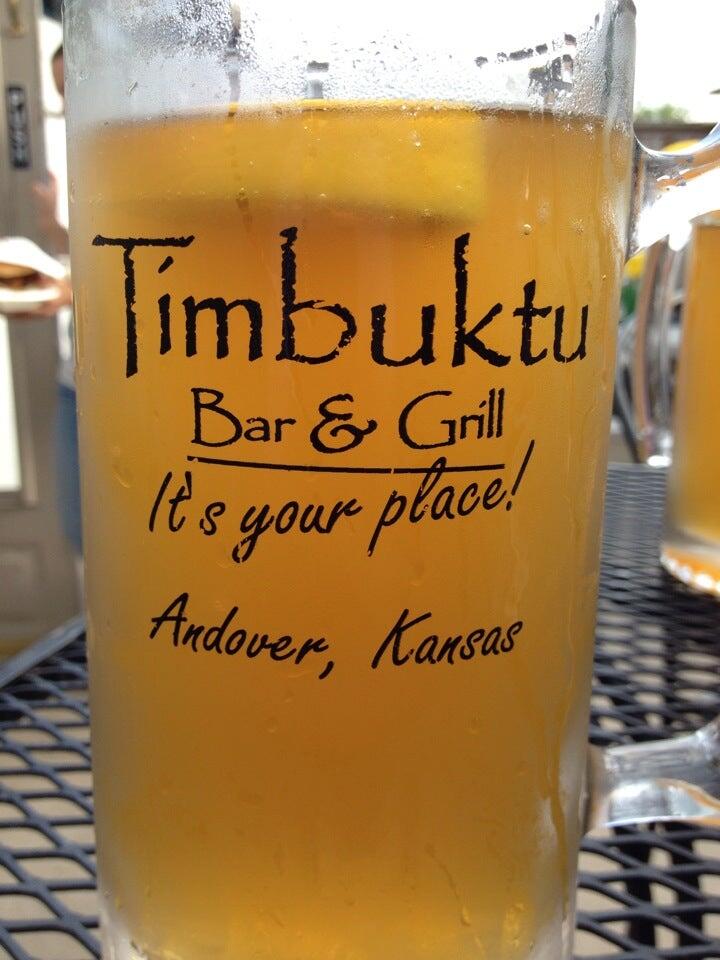 Timbuktu
Bar & Grill
It's your place!
Andover, Kansas